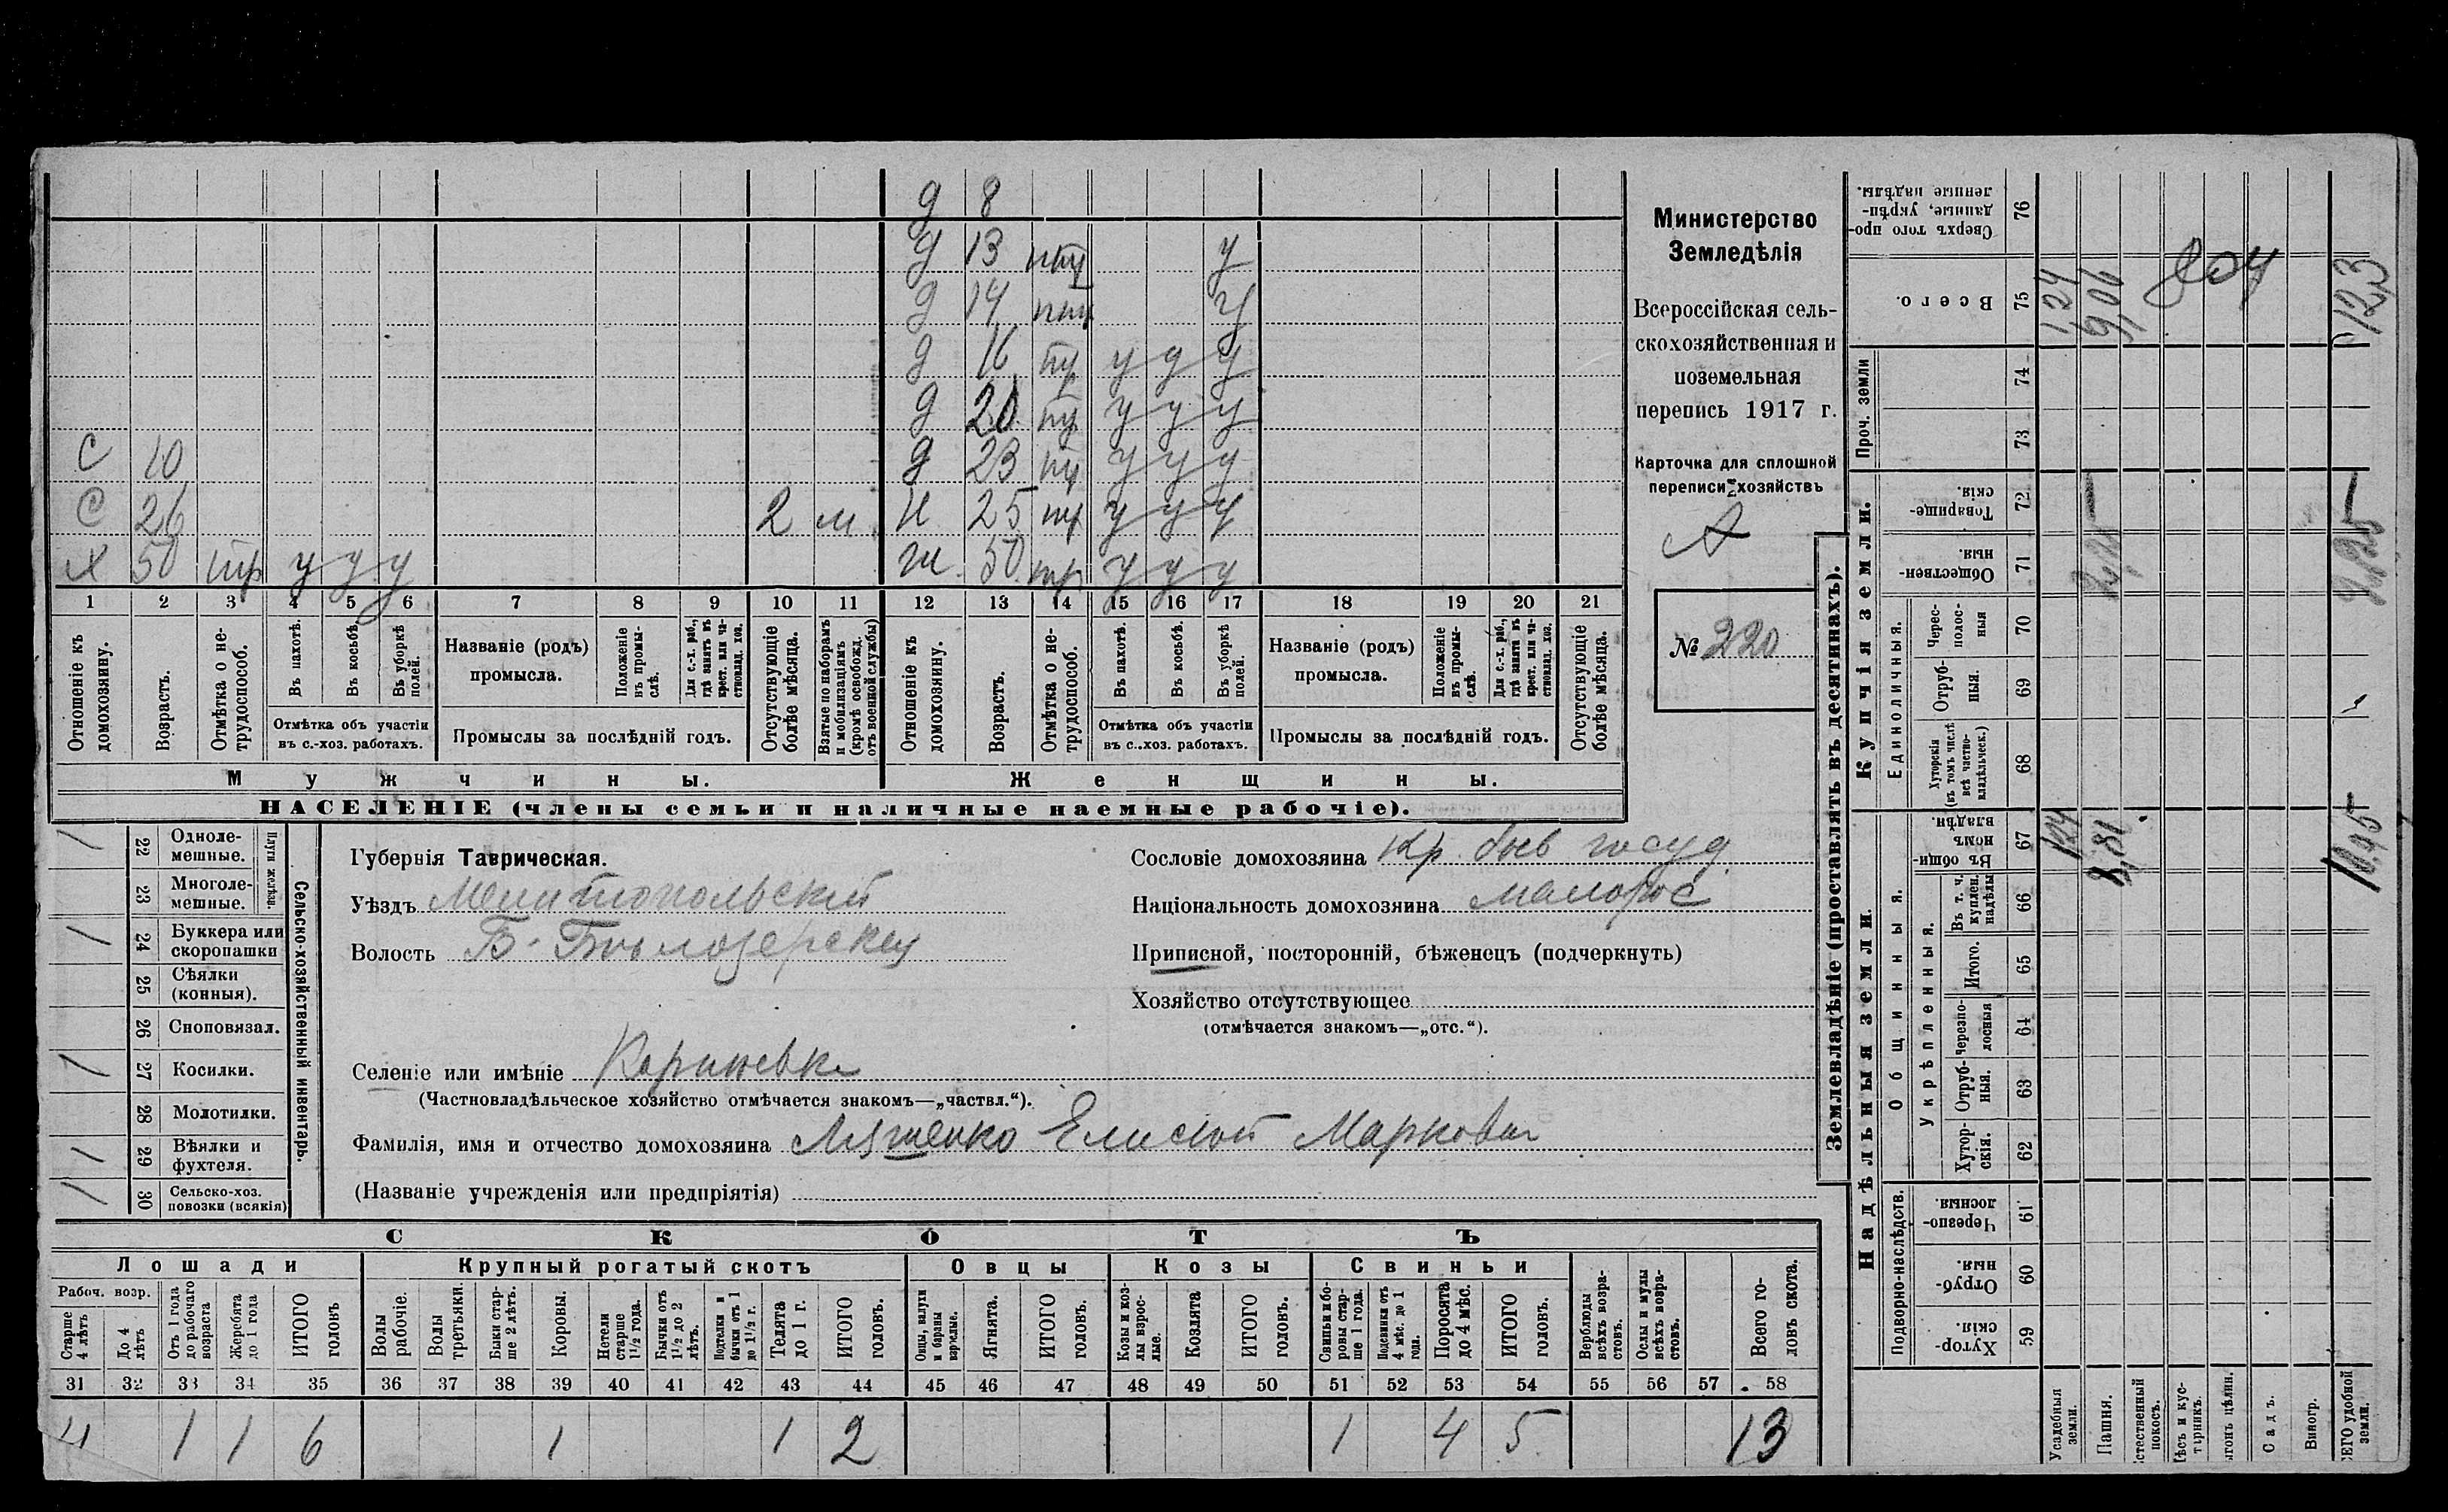 д 8
д 13 нтр у
д 14 нтр у
д 16 тр у у у
д 20 тр у у у
С 10 д 23 тр у у у
С 26 2 м Н 25 тр у у у
Х 50 тр у у у ж 50 тр у у у
1 2 3 4 5 6 7 8 9 10 11 12 13 14 15 16 17 18 19 20 21
Отношеніе къ домохозяину.
Возрастъ.
Отмѣтка о не-
трудоспособ.
Въ пахотѣ.
Въ косьбѣ.
Въ уборкѣ полей.
Отмѣтка объ участіи
въ с.-хоз. работахъ.
Названіе (родъ)
промысла.
Положеніе въ промы-
слѣ.
Для с.-х. раб., гдѣ занятъ въ крест. или ча-
стновлад. хоз.
Промыслы за послѣдній годъ.
Отсутствующіе болѣе мѣсяца.
Взятые по наборамъ и мобилизаціямъ (кромѣ освобожд. отъ военной службы)
Отношеніе къ домохозяину.
Возрастъ.
Отмѣтка о не-
трудоспособ.
Въ пахотѣ.
Въ косьбѣ.
Въ уборкѣ полей.
Отмѣтка объ участіи
въ с..хоз. работахъ.
Названіе (родъ)
промысла.
Положеніе въ промы-
слѣ.
Для с.-х. раб., гдѣ занята въ крест. или ча-
стновлад. хоз.
Промыслы за послѣдній годъ.
Отсутствующіе болѣе мѣсяца.
Мужчины.
Женщины.
НАСЕЛЕНІЕ (члены семьи и наличные наемные рабочіе).
Министерство
Земледѣлія
Всероссійская сель-
скохозяйственная и
поземельная
перепись 1917 г.
Карточка для сплошной
переписи хозяйствъ
№ 220
Сельско-хозяйственный инвентарь.
Плуги желѣзн.
1 22 Одноле-
мешные.
23 Многоле-
мешные.
1 24 Буккера или
скоропашки
25 Сѣялки
(конныя).
26 Сноповязал.
1 27 Косилки.
28 Молотилки.
1 29 Вѣялки и
фухтеля.
1 30 Сельско-хоз.
повозки (всякія)
Губернія Таврическая.
Уѣздъ Мелитопольскій
Волость Б-Бѣлозерская
Сословіе домохозяина Кр. быв госуд.
Національность домохозяина малорос
Приписной, посторонній, бѣженецъ (подчеркнуть)
Хозяйство отсутствующее
(отмѣчается знакомъ—„отс.“).
Селеніе или имѣніе
(Частновладѣльческое хозяйство отмѣчается знакомъ—„частвл.“).
Фамилія, имя и отчество домохозяина Ляшенко Елисей Маркович
(Названіе учрежденія или предпріятія)
СКОТЪ
Лошади
Крупный рогатый скотъ
Овцы
Козы
Свиньи
Рабоч. возр.
Старше 4 лѣтъ
До 4 лѣтъ
Отъ 1 года до рабочаго возраста
Жеребята до 1 года
ИТОГО головъ
Волы рабочіе.
Волы третьяки.
Быки стар-
ше 2 лѣтъ.
Коровы.
Нетели старше 1½ года.
Бычки отъ 1½ до 2 лѣтъ.
Подтелки и бычки отъ 1 до 1½ г.
Телята до 1 г.
ИТОГО головъ.
Овцы, валухи и бараны взрослые.
Ягнята.
ИТОГО головъ.
Козы и коз-
лы взрос-
лые.
Козлята
ИТОГО головъ.
Свиньи и бо-
ровы стар-
ше 1 года.
Подсвинки отъ 4 мѣс. до 1 года.
Поросята до 4 мѣс.
ИТОГО головъ.
Верблюды всѣхъ возра-
стовъ.
Ослы и мулы всѣхъ возра-
стовъ.
Всего го-
ловъ скота.
31 32 33 34 35 36 37 38 39 40 41 42 43 44 45 46 47 48 49 50 51 52 53 54 55 56 57 58
4 1 1 6 1 1 2 1 4 5 13
Землевладѣніе (проставлять въ десятинахъ).
Надѣльныя земли.
Купчія земли.
Проч. земли
Подворно-наслѣдств.
Общинныя.
Укрѣпленныя.
Единоличныя.
Сверхъ того про-
данные, укрѣп-
ленные надѣлы. 76
Всего. 75 1,24 123
74
73
Товарище-
скія. 72
Обществен-
ныя. 71
Черес-
полос-
ныя 70
Отруб-
ныя. 69
Хуторскія (въ томъ числѣ всѣ частно-
владѣльческ.) 68
Въ общи-
номъ владѣн. 67 1,24
Въ т. ч. куплен. надѣлы 66
Итого. 65
Черезпо-
лосныя 64
Отруб-
ныя. 63
Хутор-
скія. 62
Черезпо-
лосныя 61
Отруб-
ныя. 60
Хутор-
скія. 59
Усадебныя земли.
Пашня.
стественный покосъ.
ѣсъ и кус-
тарникъ.
ыгонъ цѣлин.
Садъ.
Виногр.
ЕГО удобной земли.